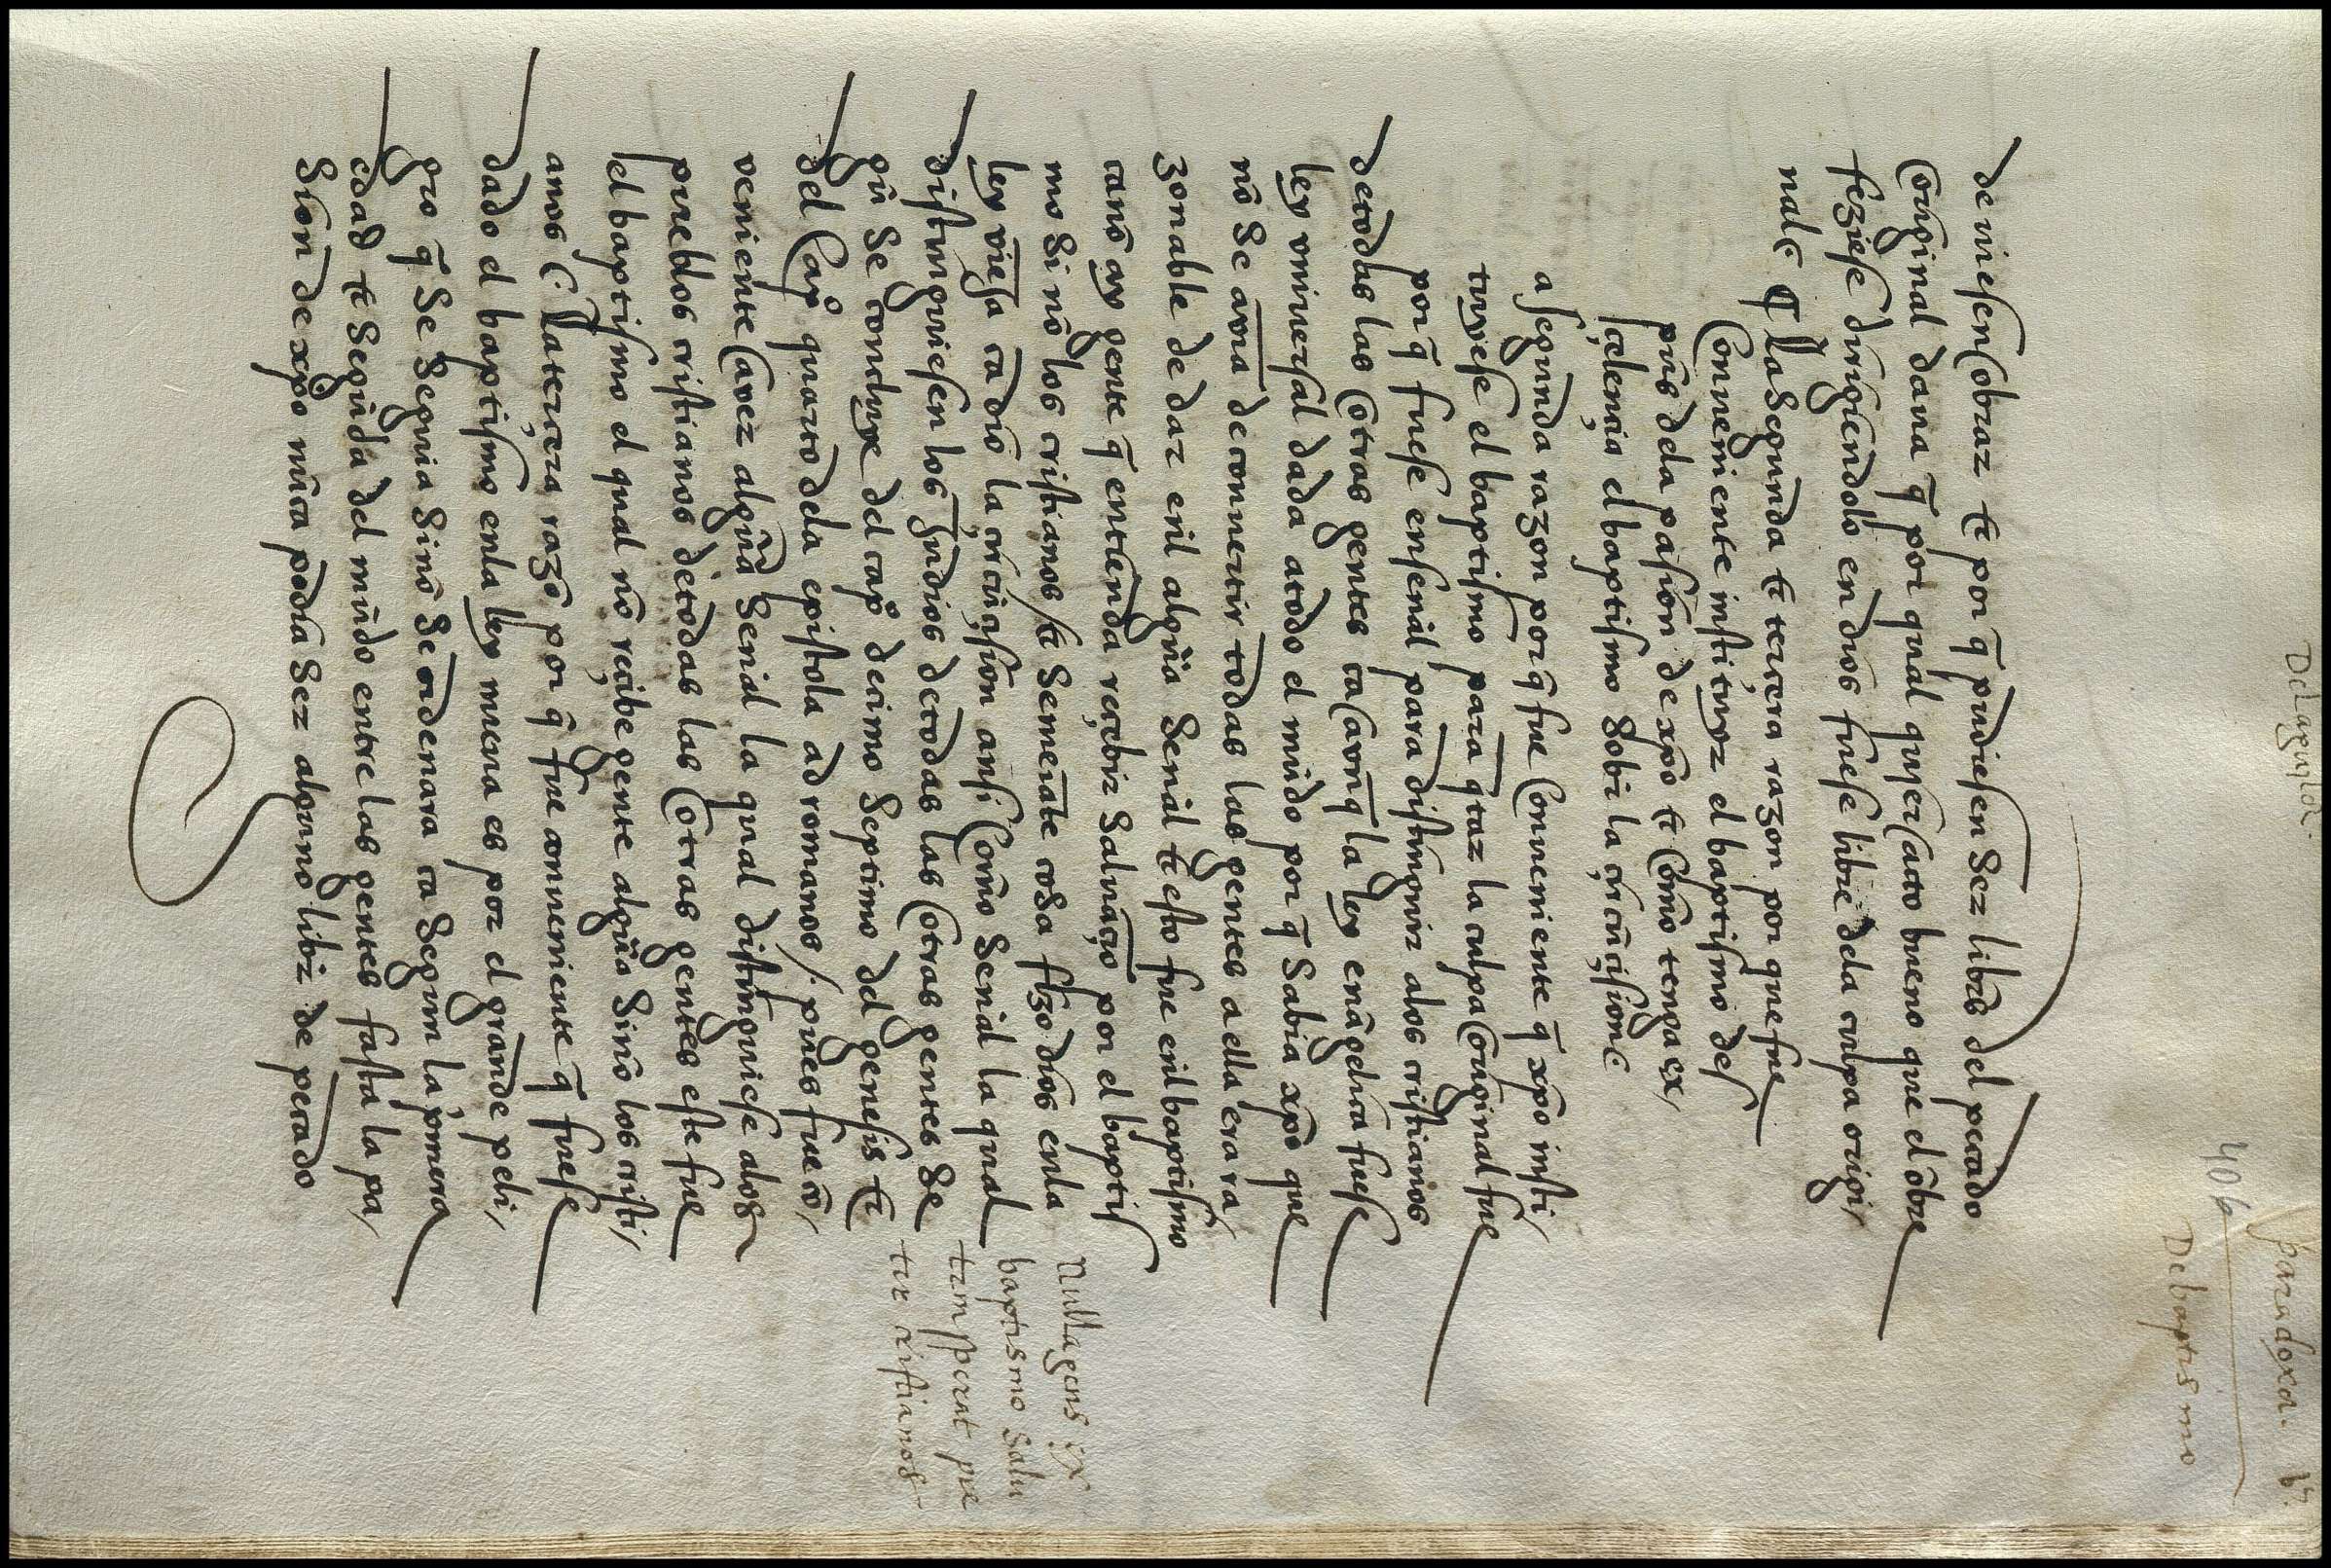 Del aguylox.
paradoxa. b.
406
De baptismo
deviesen obrar τ por q̄ pudiesen ser libres del pecado
original dava q̄ por qual quyer acto bueno que el ōbre
feziese dirigiendolo en dios fuese libre dela culpa origi/
nal. ¶ la segunda τ terçera razon por que fue
Conveniente instituyr el baptismo des
pues dela pasion de xp̄o τ como tenga ex/
çelençia el baptismo sobr̄ la çircūçision
a segunda razon por q̄ fue conveniente q̄ xp̄o insti/
tuyese el baptismo para qtar la culpa original fue
por q̄ fuese en señal para distinguir alos cristianos
de todas las otras gentes ca avn q̄ la ley enāgelica fuese
ley universal dada a todo el mūdo por q̄ sabia xp̄o que
nō se avia de convertir todas las gentes a ella era ra/
zonable de dar eñl algūa señal τ esto fue eñl baptismo
ca nō ay gente q̄ entienda reçebir salvaçio por el baptis
mo si nō los cristianos / τ semeiāte cosa fizo dios enla
ley vieja ca dio la çircūçision ansi como señal la qual
distinguiesen los judios de todas las otras gentes se
gū se concluye del cap̊ deçimo septimo del genesis τ
del Cap̊ quarto dela epistola ad romanos /. pues fue cō/
veniente aver algūa señal la qual distinguiese alos
pueblos cristianos de todas las otras gentes este fue
el baptismo el qual nō reçibe gente algūa sinō los cristi/
anos ¶ la terçera razō por q̄ fue conveniente q̄ fuese
dado el baptismo enla ley nueva es por el grande peli/
gro q̄ se seguia sinō se ordenara ca segun la p̃mera
edad τ segūda del mūdo entre las gentes fasta la pa/
sion de xp̄o nūca podia ser alguno libr̄ de pecado
Nulla gens ex
baptismo salu
tem sperat pre
ter cristianos